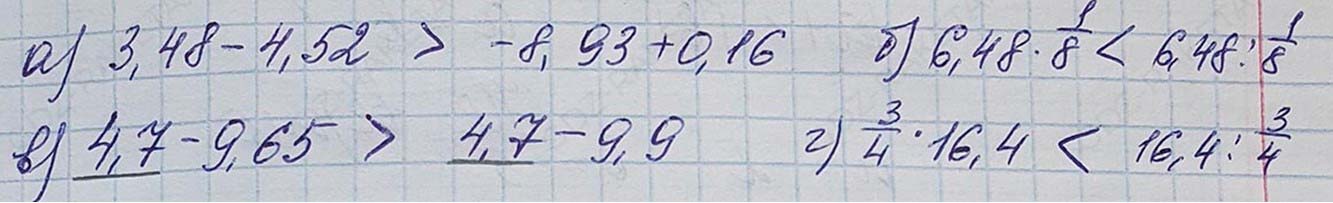 а) 3,48 - 4,52 > -8,93 + 0,16 б) 6,48 · 1/8 < 6,48 : 1/8
в) 4,7 - 9,65 > 4,7 - 9,9 г) 3/4 · 16,4 < 16,4 : 3/4